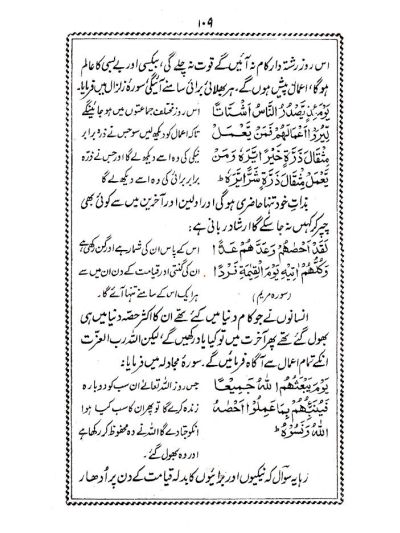 ۱۰۹
اس روز رشتہ دار کام نہ آئیں گے قوت نہ چلے گی، بیکسی اور بے بسی کا عالم
ہوگا، اعمال پیش ہوں گے، ہر بھلائی برائی سامنے آئیگی سورۂ زلزال میں فرمایا۔
يَوْمَئِذٍ يَّصْدُرُ النَّاسُ اَشْتَاتًا اس روز مختلف جماعتوں میں ہو جائینگے
لِّيُرَوْا اَعْمَالَهُمْ فَمَنْ يَّعْمَلْ تاکہ اعمال کو دیکھ لیں سو جس نے ذرہ برابر
مِثْقَالَ ذَرَّةٍ خَيْرًا يَّرَهٗ وَمَنْ نیکی کی وہ اسے دیکھ لے گا اور جس نے ذرہ
يَّعْمَلْ مِثْقَالَ ذَرَّةٍ شَرًّا يَّرَهٗ ط برابر برائی کی وہ اسے دیکھ لے گا
بذاتِ خود تنہا حاضری ہوگی اور اولین اور آخرین میں سے کوئی بھی
کہیں نہ جا سکے گا ارشاد ربانی ہے:
لَقَدْ اَحْصٰهُمْ وَعَدَّهُمْ عَدًّا اس کے پاس ان کی شمار ہے اور گن رکھی ہے
وَكُلُّهُمْ اٰتِيْهِ يَوْمَ الْقِيٰمَةِ فَرْدًا ان کی گنتی اور قیامت کے دن ان میں سے
(سورہ مریم) ہر ایک اس کے سامنے تنہا آئے گا۔
انسانوں نے جو کام دنیا میں کئے تھے ان کا اکثر حصہ دنیا میں ہی
بھول گئے تھے پھر آخرت میں تو کیا یاد رکھیں گے، لیکن اللہ رب العزت
انکے تمام اعمال سے آگاہ فرمائیں گے۔ سورۂ مجادلہ میں فرمایا:
يَوْمَ يَبْعَثُهُمُ اللّٰهُ جَمِيْعًا جس روز اللہ تعالیٰ ان سب کو دوبارہ
فَيُنَبِّئُهُمْ بِمَا عَمِلُوْا اَحْصٰهُ زندہ کرے گا تو پھر ان کا سب کیا ہوا
اللّٰهُ وَنَسُوْهُ ط انکو جتا دے گا اللہ نے وہ محفوظ کر رکھا ہے
اور وہ بھول گئے۔
رہا یہ سوال کہ نیکیوں اور برائیوں کا بدلہ قیامت کے دن پر ادھار